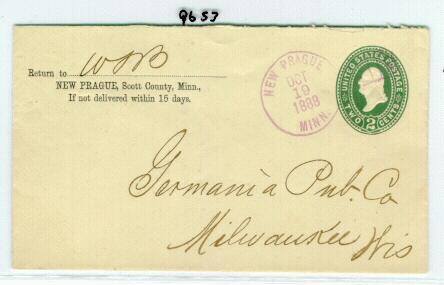 9653
Return to WSB
NEW PRAGUE, Scott County, Minn.,
If not delivered within 15 days.
NEW PRAGUE
OCT
19
1888
MINN.
UNITED STATES POSTAGE
TWO 2 CENTS
Germania Pub. Co
Milwaukee Wis